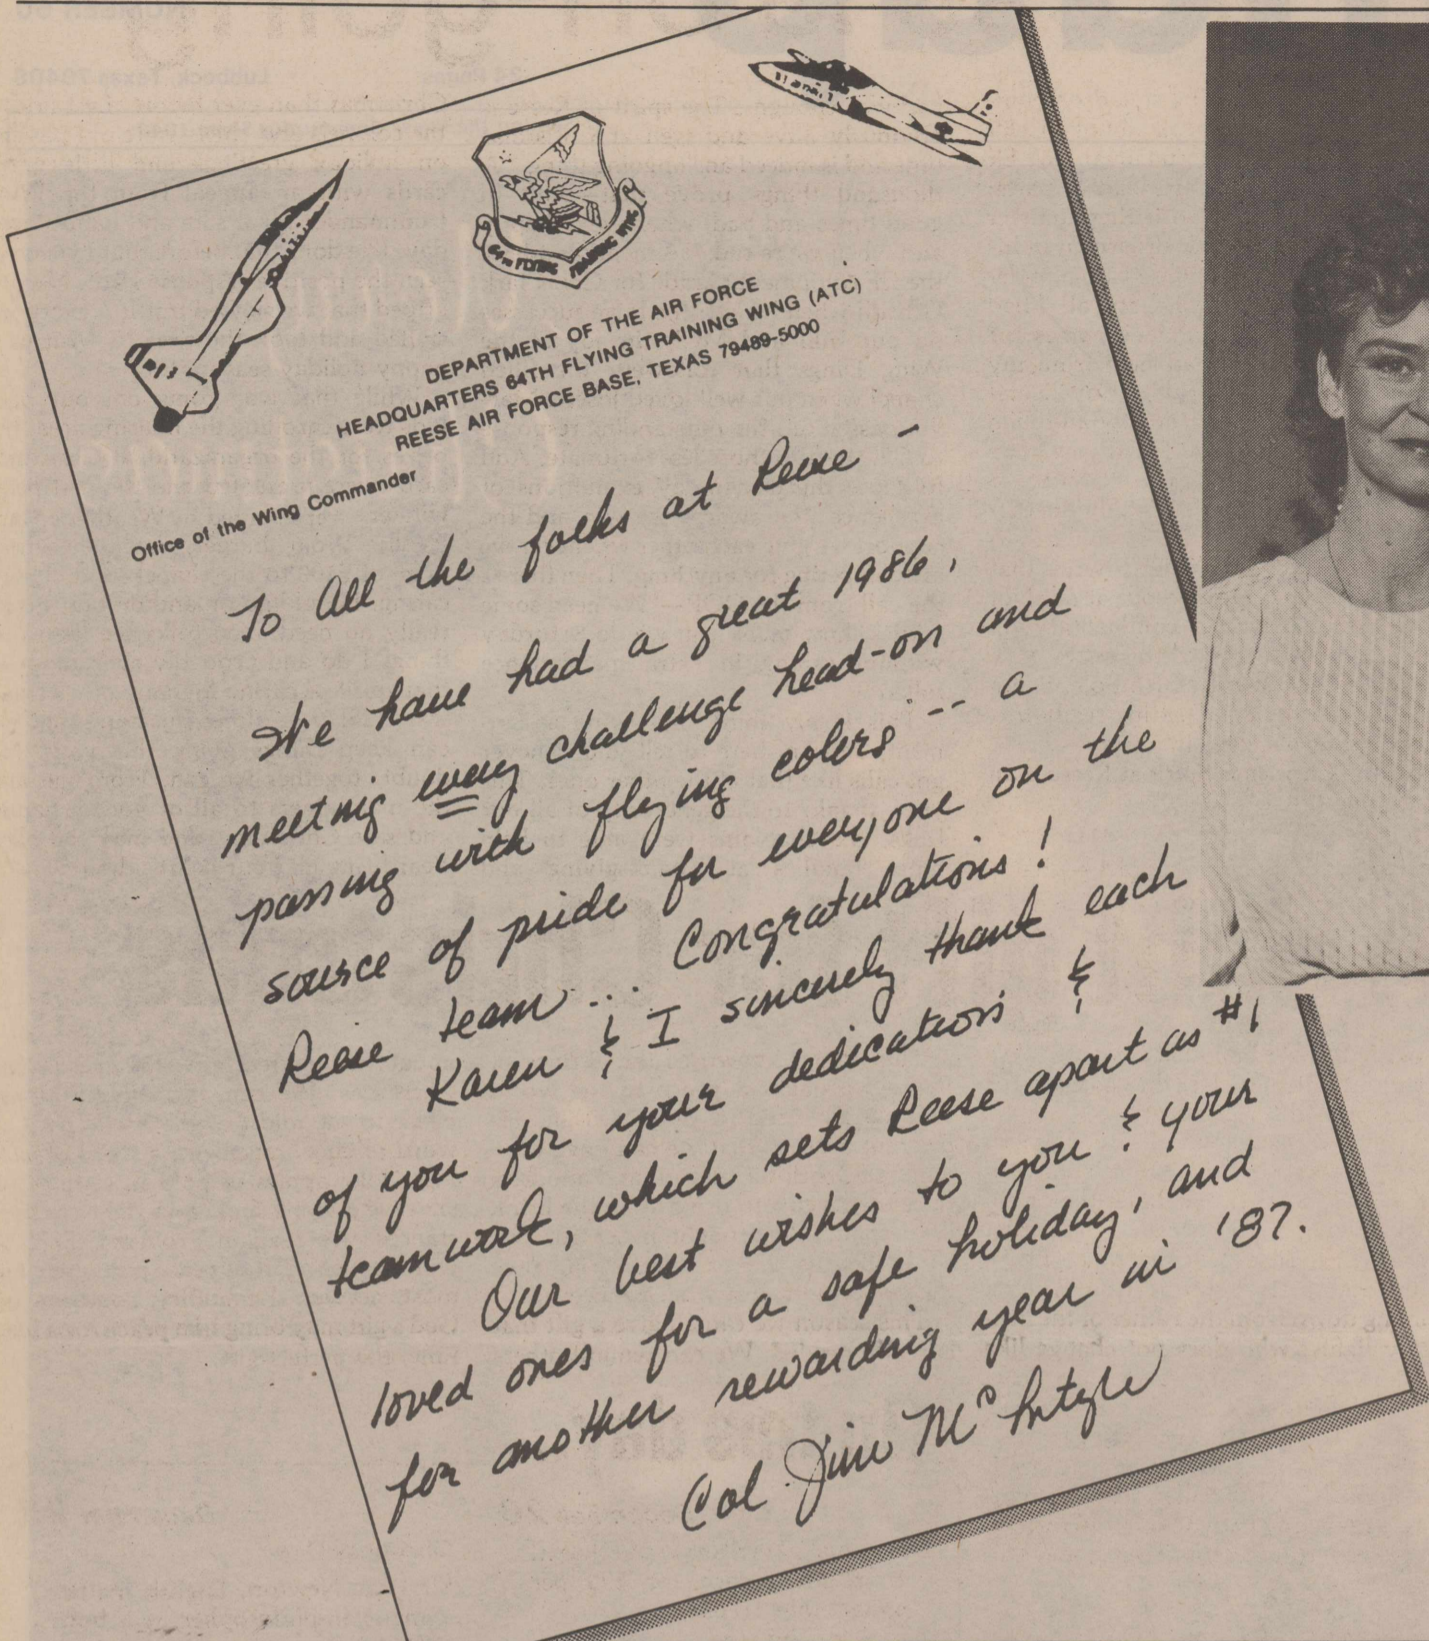 64TH FLYING TRAINING WING
DEPARTMENT OF THE AIR FORCE
HEADQUARTERS 64TH FLYING TRAINING WING (ATC)
REESE AIR FORCE BASE, TEXAS 79489-5000
Office of the Wing Commander
To All the folks at Reese –
We have had a great 1986,
meeting every challenge head-on and
passing with flying colors -- a
source of pride for everyone on the
Reese team... Congratulations!
Karen & I sincerely thank each
of you for your dedication &
teamwork, which sets Reese apart as #1
Our best wishes to you & your
loved ones for a safe holiday, and
for another rewarding year in '87.
Col Jim McIntyre